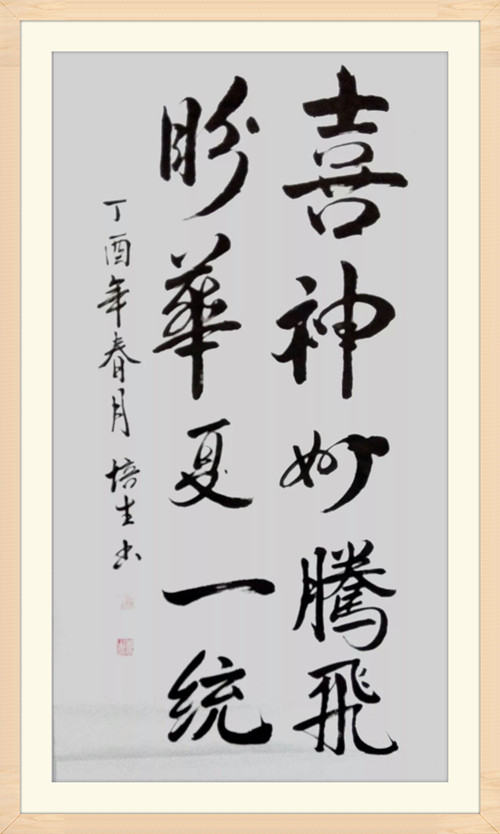 喜神州騰飛
盼華夏一统
丁酉年春月 培生书